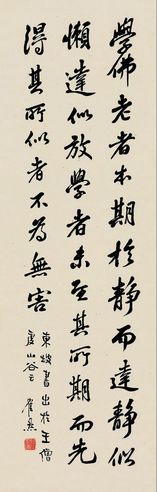 學佛老者本期於靜而達靜似
懶達似放學者未至其所期而先
得其所似者不為無害
東坡書出於王僧
虔山谷云